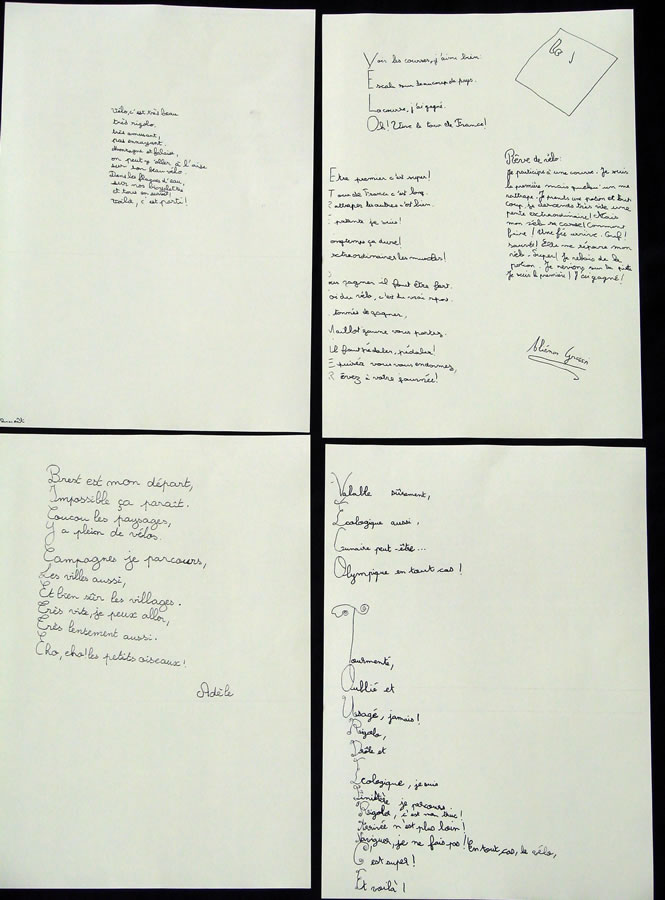 Vélo, c'est très beau
très rigolo.
très amusant,
pas ennuyant.
on peut y aller à l'aise
sur son beau vélo.
Dans les flaques d'eau,
sur nos bicyclettes
et tous en
voilà, c'est parti!
Voir les courses, j'aime bien.
Escale sur beaucoup de pays.
La course, j'ai gagné.
Oh! Vive le tour de France!
Etre premier c'est super!
Tour de France c'est long.
Rattraper les autres c'est bien.
Epatante je suis!
ongtemps ça dure!
extraordinaires les muscles!
our gagner il faut être fort.
oir du vélo, c'est du vrai repos.
tonnés de gagner,
Maillot jaune vous portez.
il faut pédaler, pédaler!
Epuisée vous vous endormez,
Rêvez à votre journée!
Rêve de vélo:
Je participe à une course. Je suis
la première mais quelqu'un me
rattrape. Je prends un potion et tout
coup, je descends très vite une
pente extraordinaire! Mais
mon vélo se casse! Comment
faire! Une fée arrive. Ouf!
sauvée! Elle me répare mon
vélo. Super! Je rebois de la
potion. Je reviens sur la piste
Je suis la première! J'ai gagné!
Brest est mon départ,
Impossible ça parait.
Coucou les paysages,
Y a plein de vélos.
Campagnes je parcours,
Les villes aussi,
Et bien sûr les villages.
Très vite, je peux aller,
Très lentement aussi.
Echo, echo! les petits oiseaux!
Adèle
Valable sûrement,
Ecologique aussi,
Lunaire peut-être...
Olympique en tout cas!
Tourmenté,
Oublié et
Usagé, jamais!
Rigolo,
Drôle et
Ecologique, je suis
Finistère je parcours.
Rigolo, c'est mon truc!
Arrivée n'est plus loin!
Naviguer, je ne fais pas! En tout cas, le vélo,
C'est super!
Et voilà!